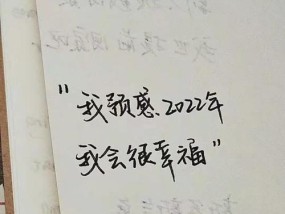 "我预感.2022年
我会很幸福"